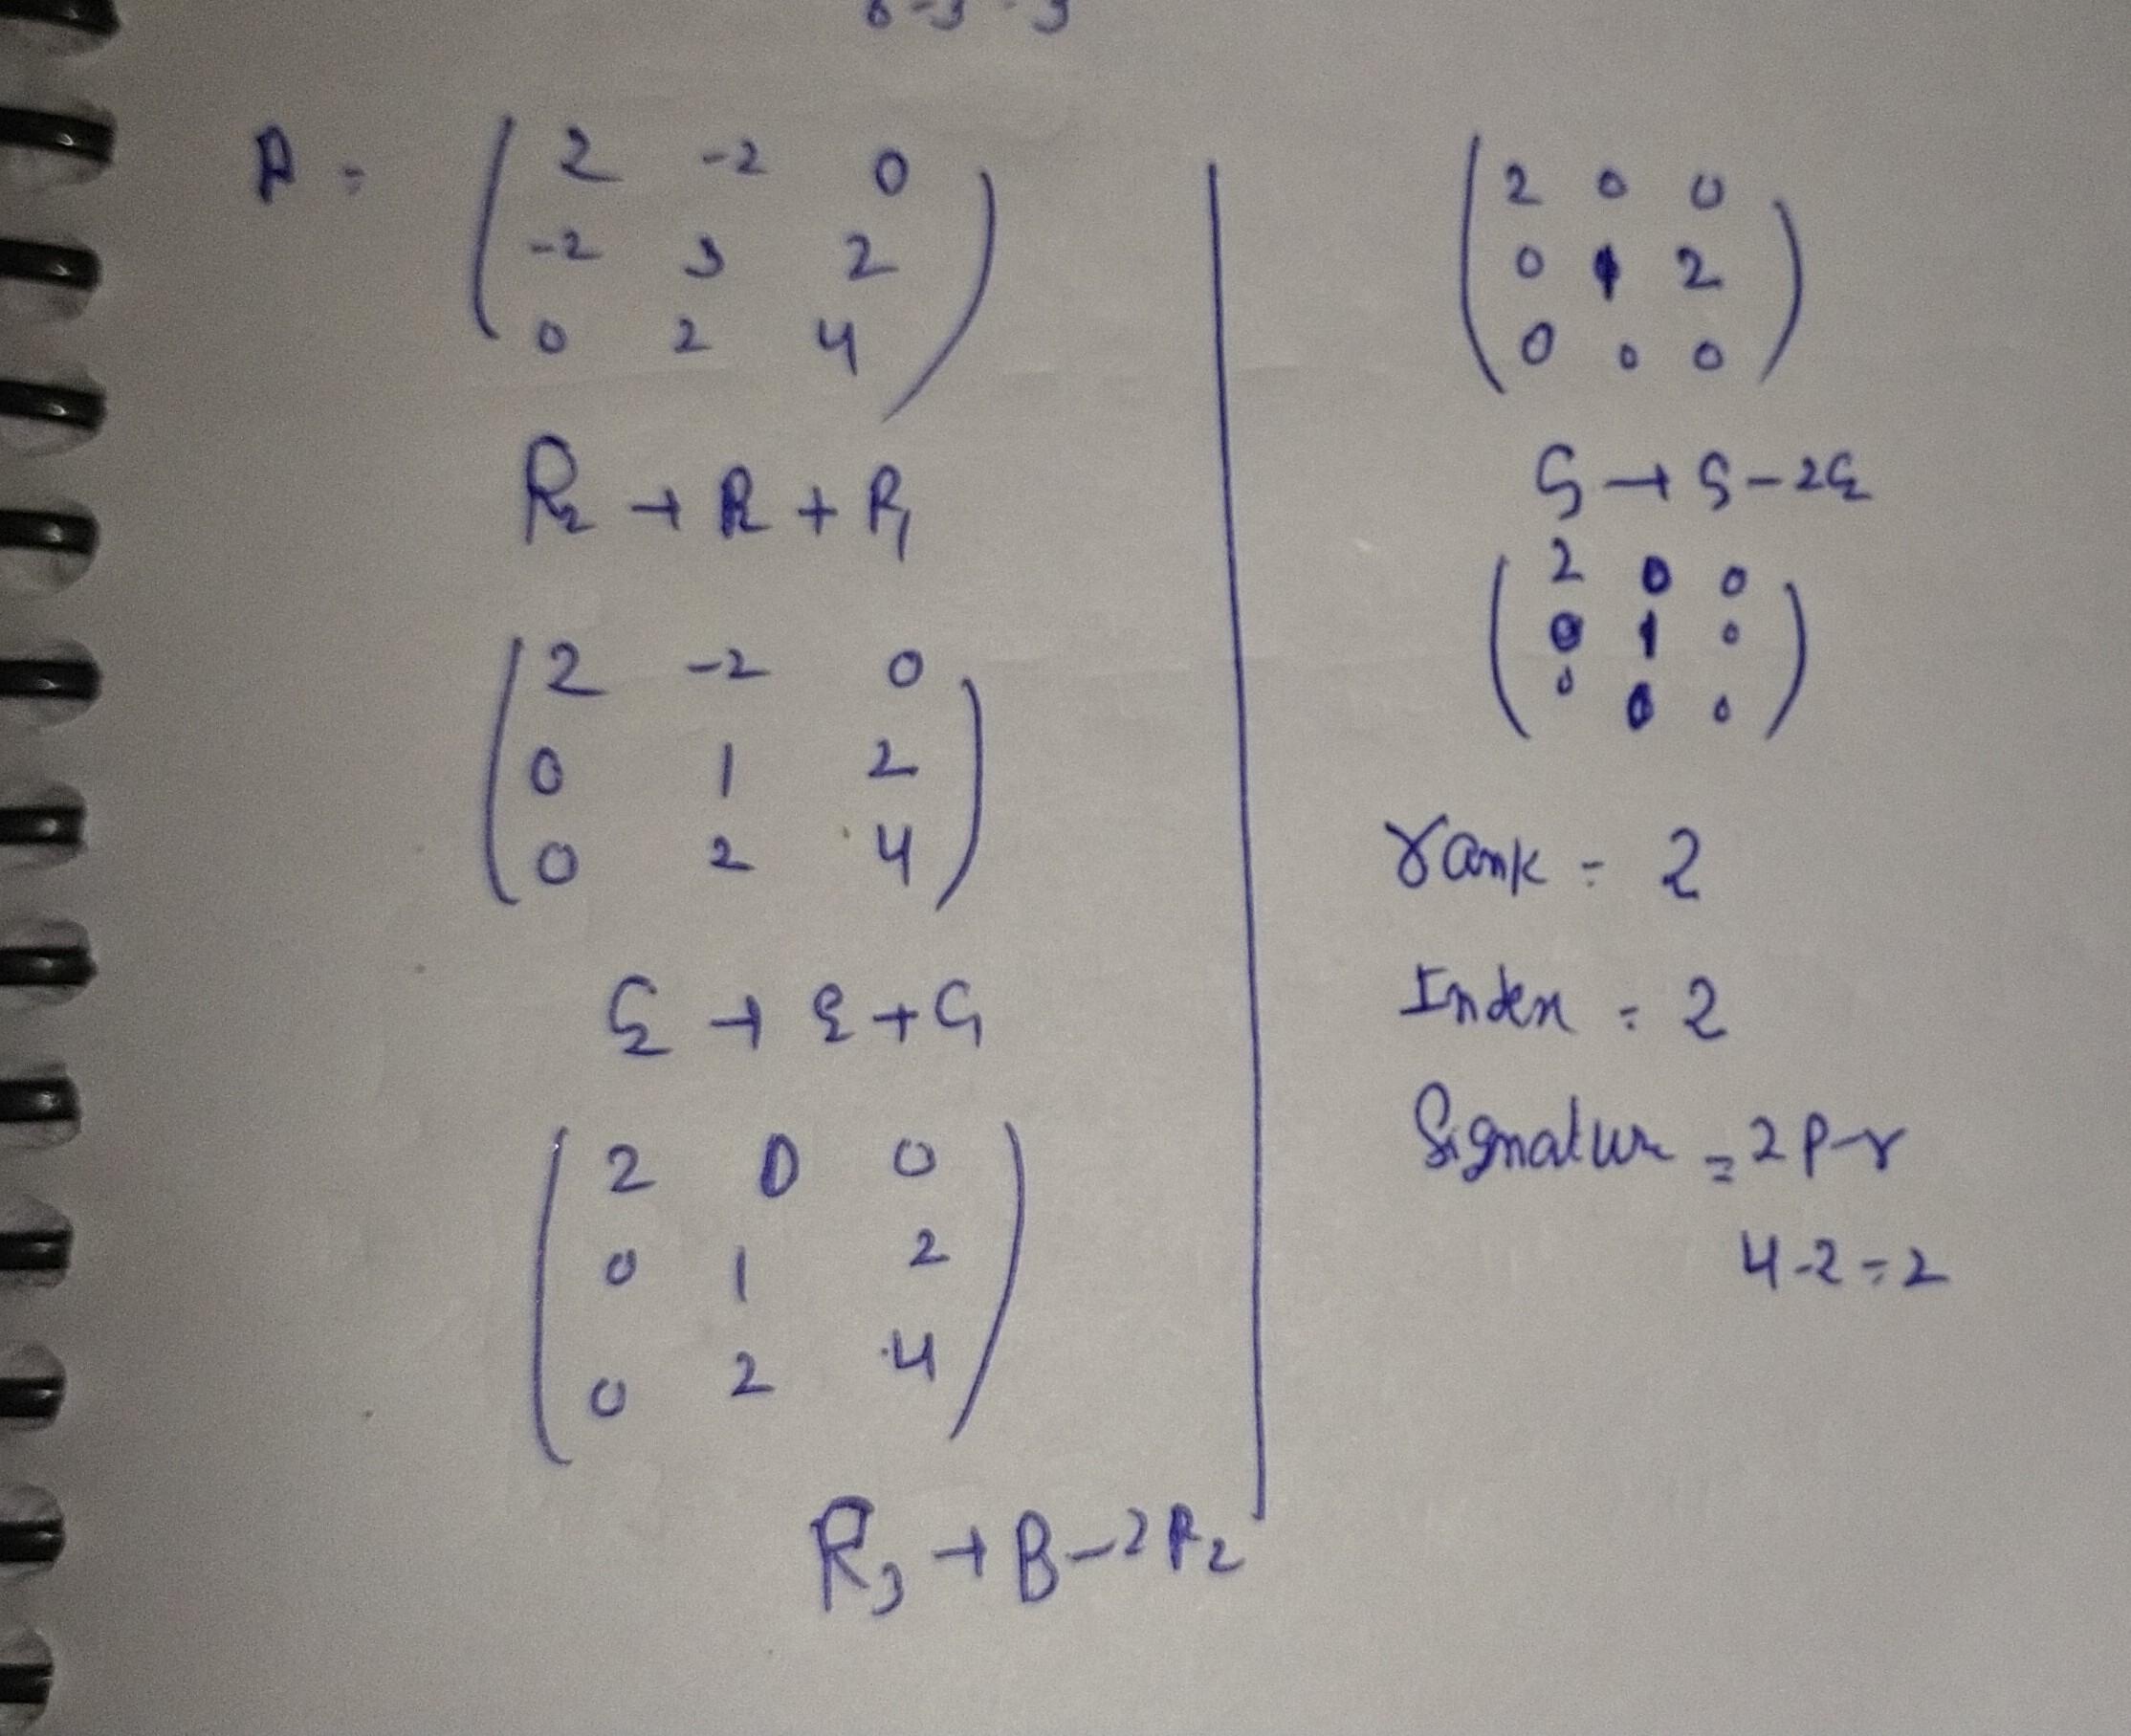 A = ( 2 -2 0
-2 3 2
0 2 4 )
R2 → R + R1
( 2 -2 0
0 1 2
0 2 4 )
C2 → C2 + C1
( 2 0 0
0 1 2
0 2 4 )
R3 → R3 - 2R2
( 2 0 0
0 1 2
0 0 0 )
C3 → C3 - 2C2
( 2 0 0
0 1 0
0 0 0 )
rank = 2
Index = 2
Signature = 2p-r
4-2=2